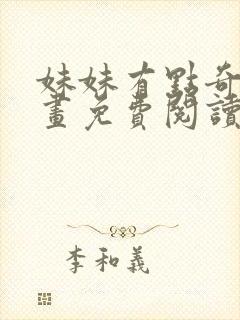 妹妹有點奇
畫免費閱讀
李和義